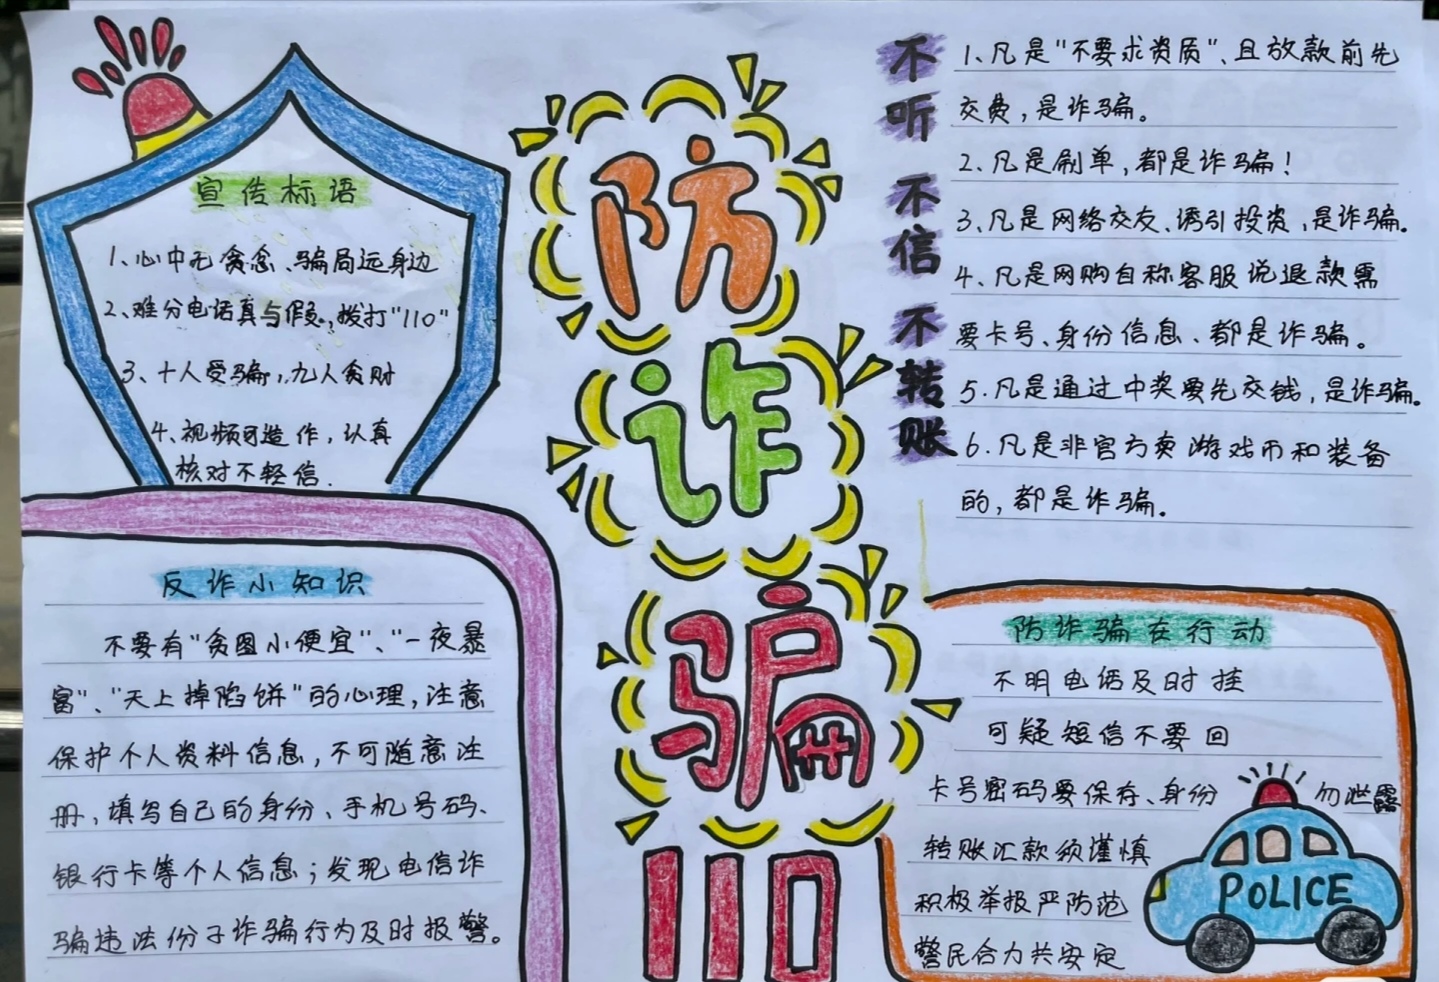 宣传标语
1、心中无贪念、骗局远身边
2、难分电话真与假,拨打"110"
3、十人受骗,九人贪财
4、视频可造作,认真
核对不轻信.
反诈小知识
不要有"贪图小便宜"、"一夜暴
富"、"天上掉陷饼"的心理,注意
保护个人资料信息,不可随意注
册,填写自己的身份、手机号码、
银行卡等个人信息;发现电信诈
骗违法份子诈骗行为及时报警。
防
诈
骗
110
不听 不信 不转账
1、凡是"不要求资质"、且放款前先
交费,是诈骗。
2、凡是刷单,都是诈骗!
3、凡是网络交友、诱引投资,是诈骗。
4、凡是网购自称客服说退款需
要卡号、身份信息、都是诈骗。
5.凡是通过中奖要先交钱,是诈骗。
6.凡是非官方卖游戏币和装备
的,都是诈骗。
防诈骗在行动
不明电话及时挂
可疑短信不要回
卡号密码要保存、身份勿泄露
转账汇款须谨慎
积极举报严防范
警民合力共安定
POLICE